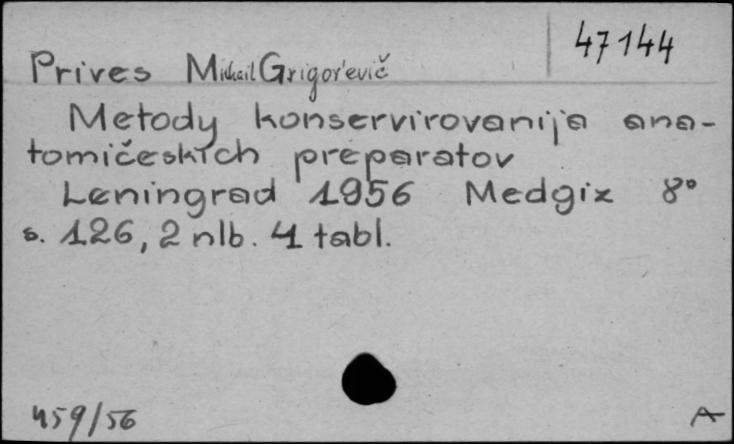 47144
Prives Michail Grigor'evič
Metody konservirovanija ana-
tomičeskich preparatov
Leningrad 1956 Medgiz 8°
s. 126, 2 nlb. 4 tabl.
459/56 A